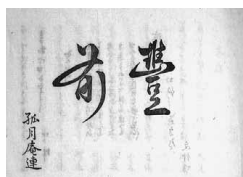 豐前
孤月庵連